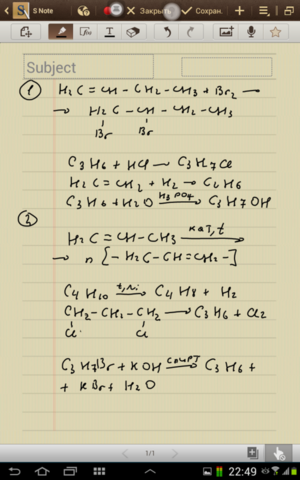 S Note
Закрыть
Сохран.
Subject
① H₂C = CH - CH₂ - CH₃ + Br₂ —
→ H₂C - CH - CH₂ - CH₃
Br Br
C₃H₆ + HCl → C₃H₇Cl
H₂C = CH₂ + H₂ → C₂H₆
C₃H₆ + H₂O H₃PO₄→ C₃H₇OH
② H₂C = CH - CH₃ кат, t→
→ n [- H₂C - CH = CH₂ -]
C₄H₁₀ t, Ni→ C₄H₈ + H₂
CH₂ - CH₂ - CH₂ → C₃H₆ + Cl₂
Cl Cl
C₃H₇Br + KOH спирт→ C₃H₆ +
+ KBr + H₂O
1/1
22:49